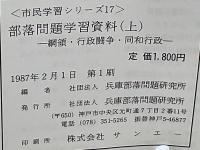 <市民学習シリーズ17>
部落問題学習資料(上)
―綱領・行政闘争・同和行政―
定価1,800円
1987年2月1日 第1刷
編者 社団法人 兵庫部落問題研究所
発行所 社団法人 兵庫部落問題研究所
(〒650) 神戸市中央区元町通7丁目2番11号
電話(078)351-5265 振替神戸9-5677
印刷所 株式会社 サンエー